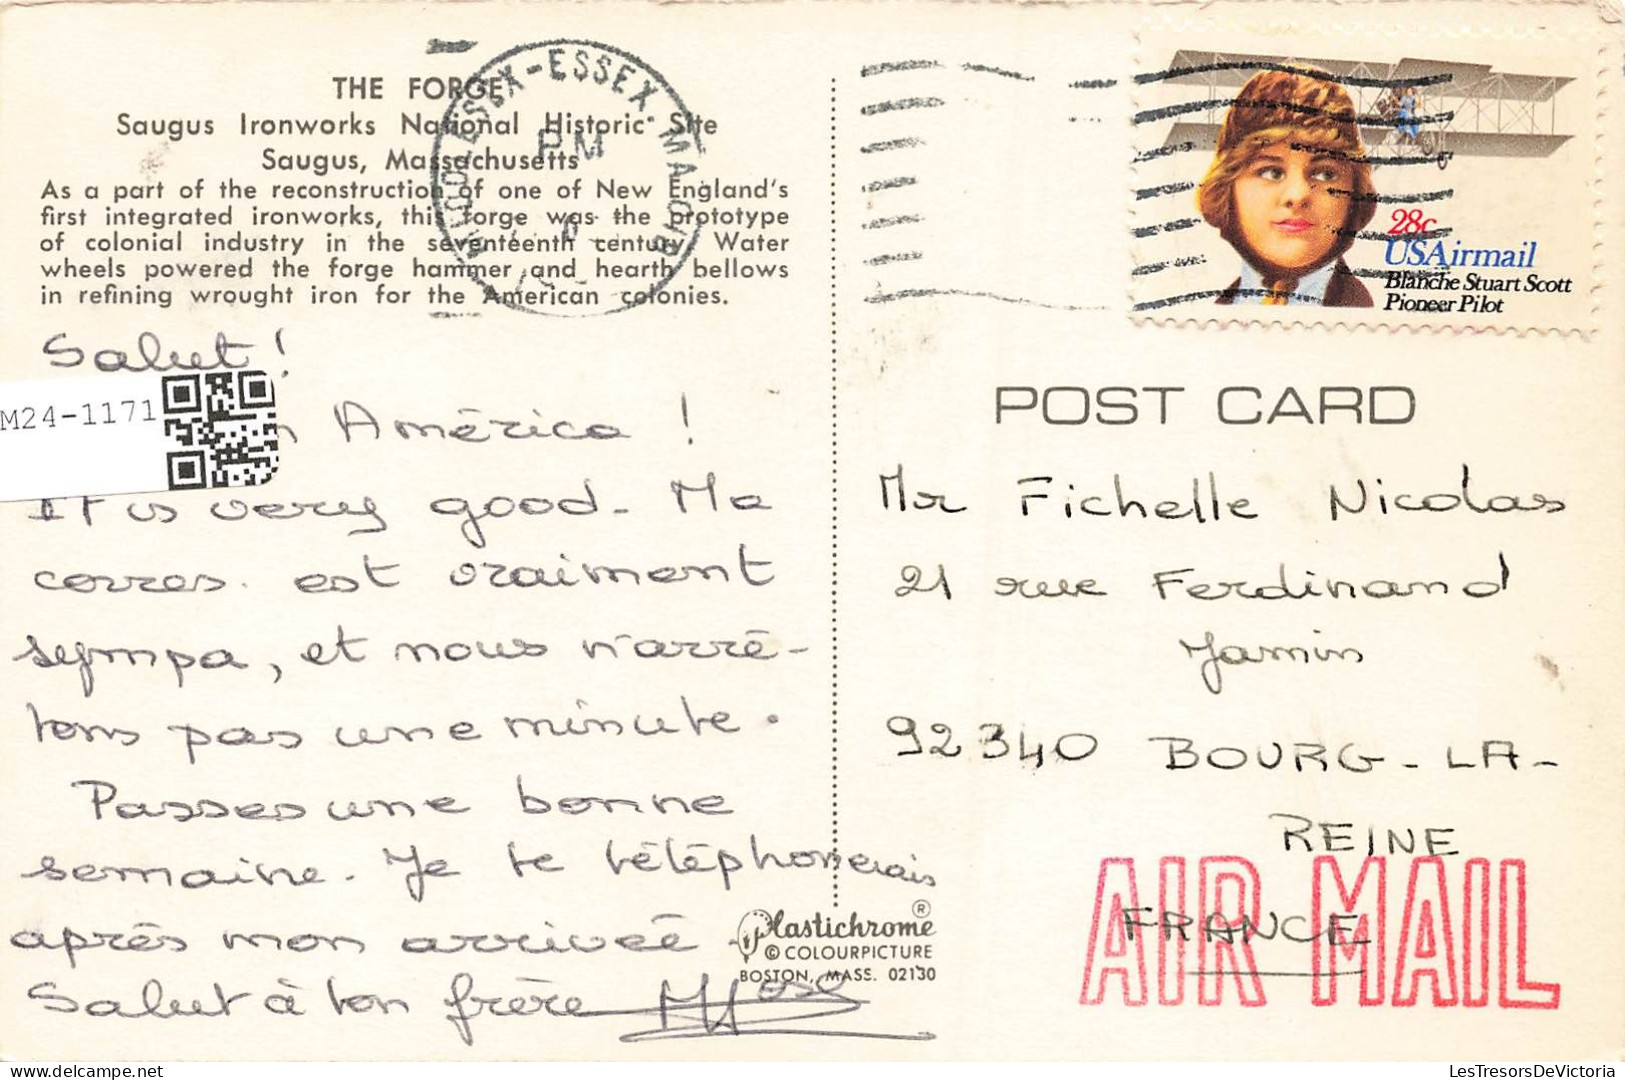 THE FORGE
Saugus Ironworks National Historic Site
Saugus, Massachusetts
As a part of the reconstruction of one of New England's
first integrated ironworks, this forge was the prototype
of colonial industry in the seventeenth century. Water
wheels powered the forge hammer and hearth bellows
in refining wrought iron for the American colonies.
MIDDLESEX-ESSEX. MA
PM
28c
USAirmail
Blanche Stuart Scott
Pioneer Pilot
Salut !
M24-1171
América !
It is very good. Ma
corres. est vraiment
sympa, et nous n'arrê-
tons pas une minute.
Passes une bonne
semaine. Je te téléphonerais
après mon arrivée.
Salut à ton frère
Plastichrome ®
© COLOURPICTURE
BOSTON, MASS. 02130
POST CARD
Mr Fichelle Nicolas
21 rue Ferdinand
Jamin
92340 BOURG-LA-
REINE
FRANCE
AIR MAIL
LesTresorsDeVictoria